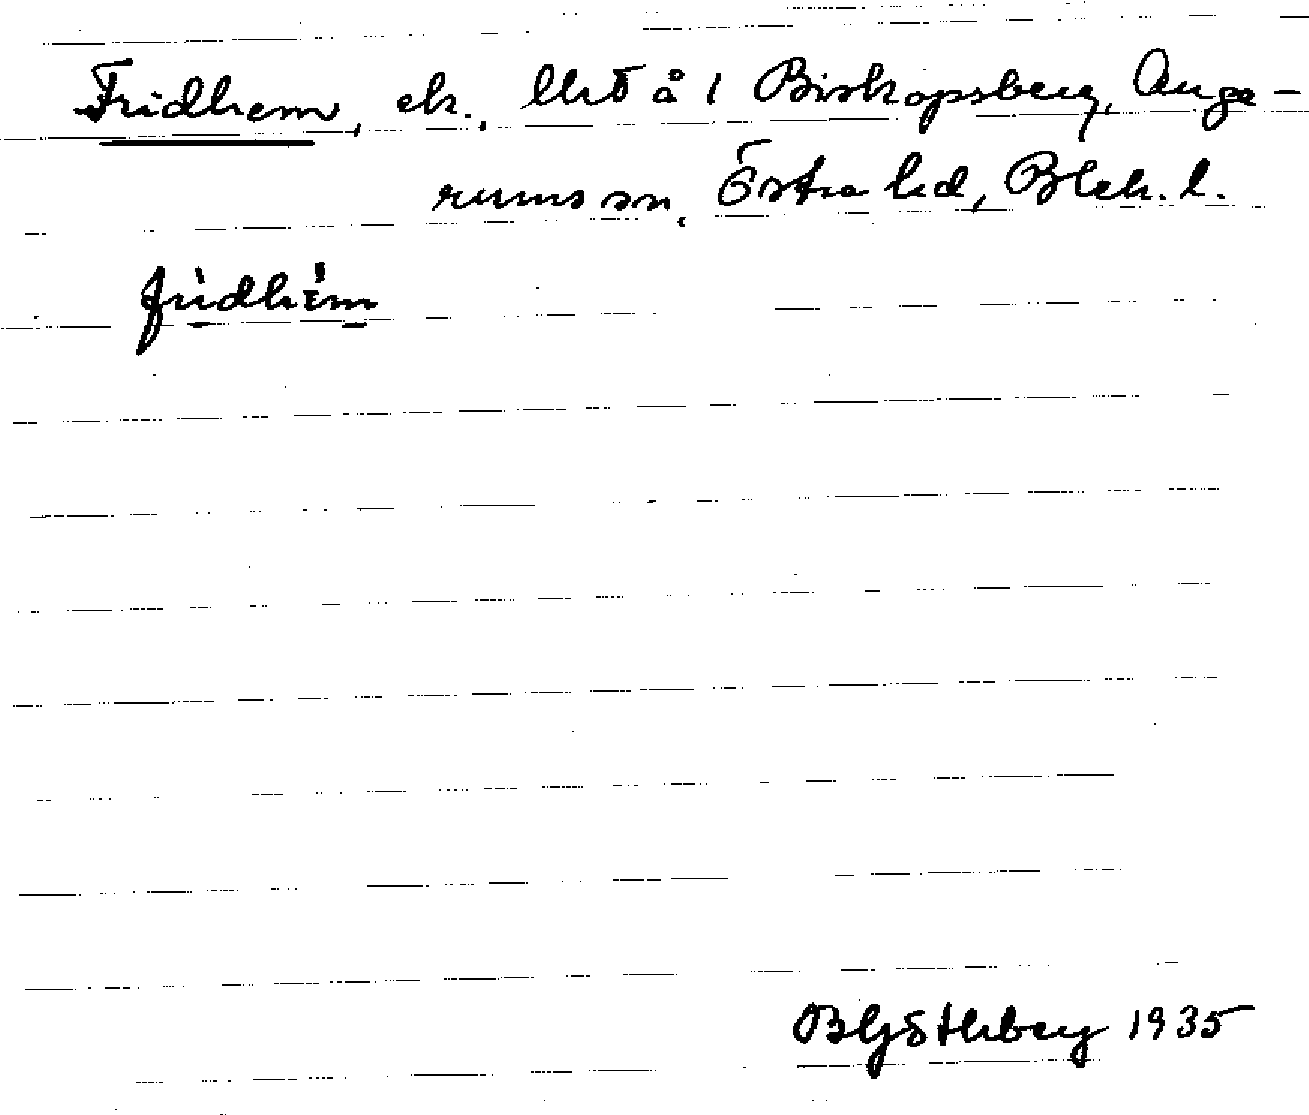 Fridhem, ek., Ut å 1 Biskopsberg, Ange-
rums sn, Östra hd, Blek. l.
fridhem
B Göthberg 1935